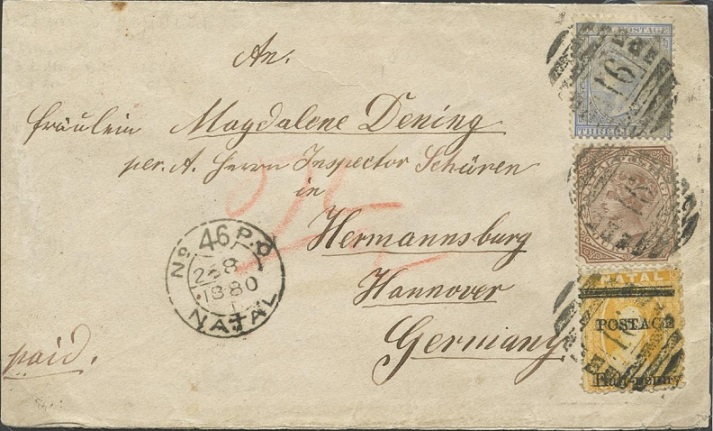 An.
Fräulein Magdalene Dening
per. A. Herrn Inspector Schüren
in
Hermannsburg
Hannover
Germany
paid.
No 46 P.O
28
1880
NATAL
POSTAGE
16
NATAL
POSTAGE
Half-penny